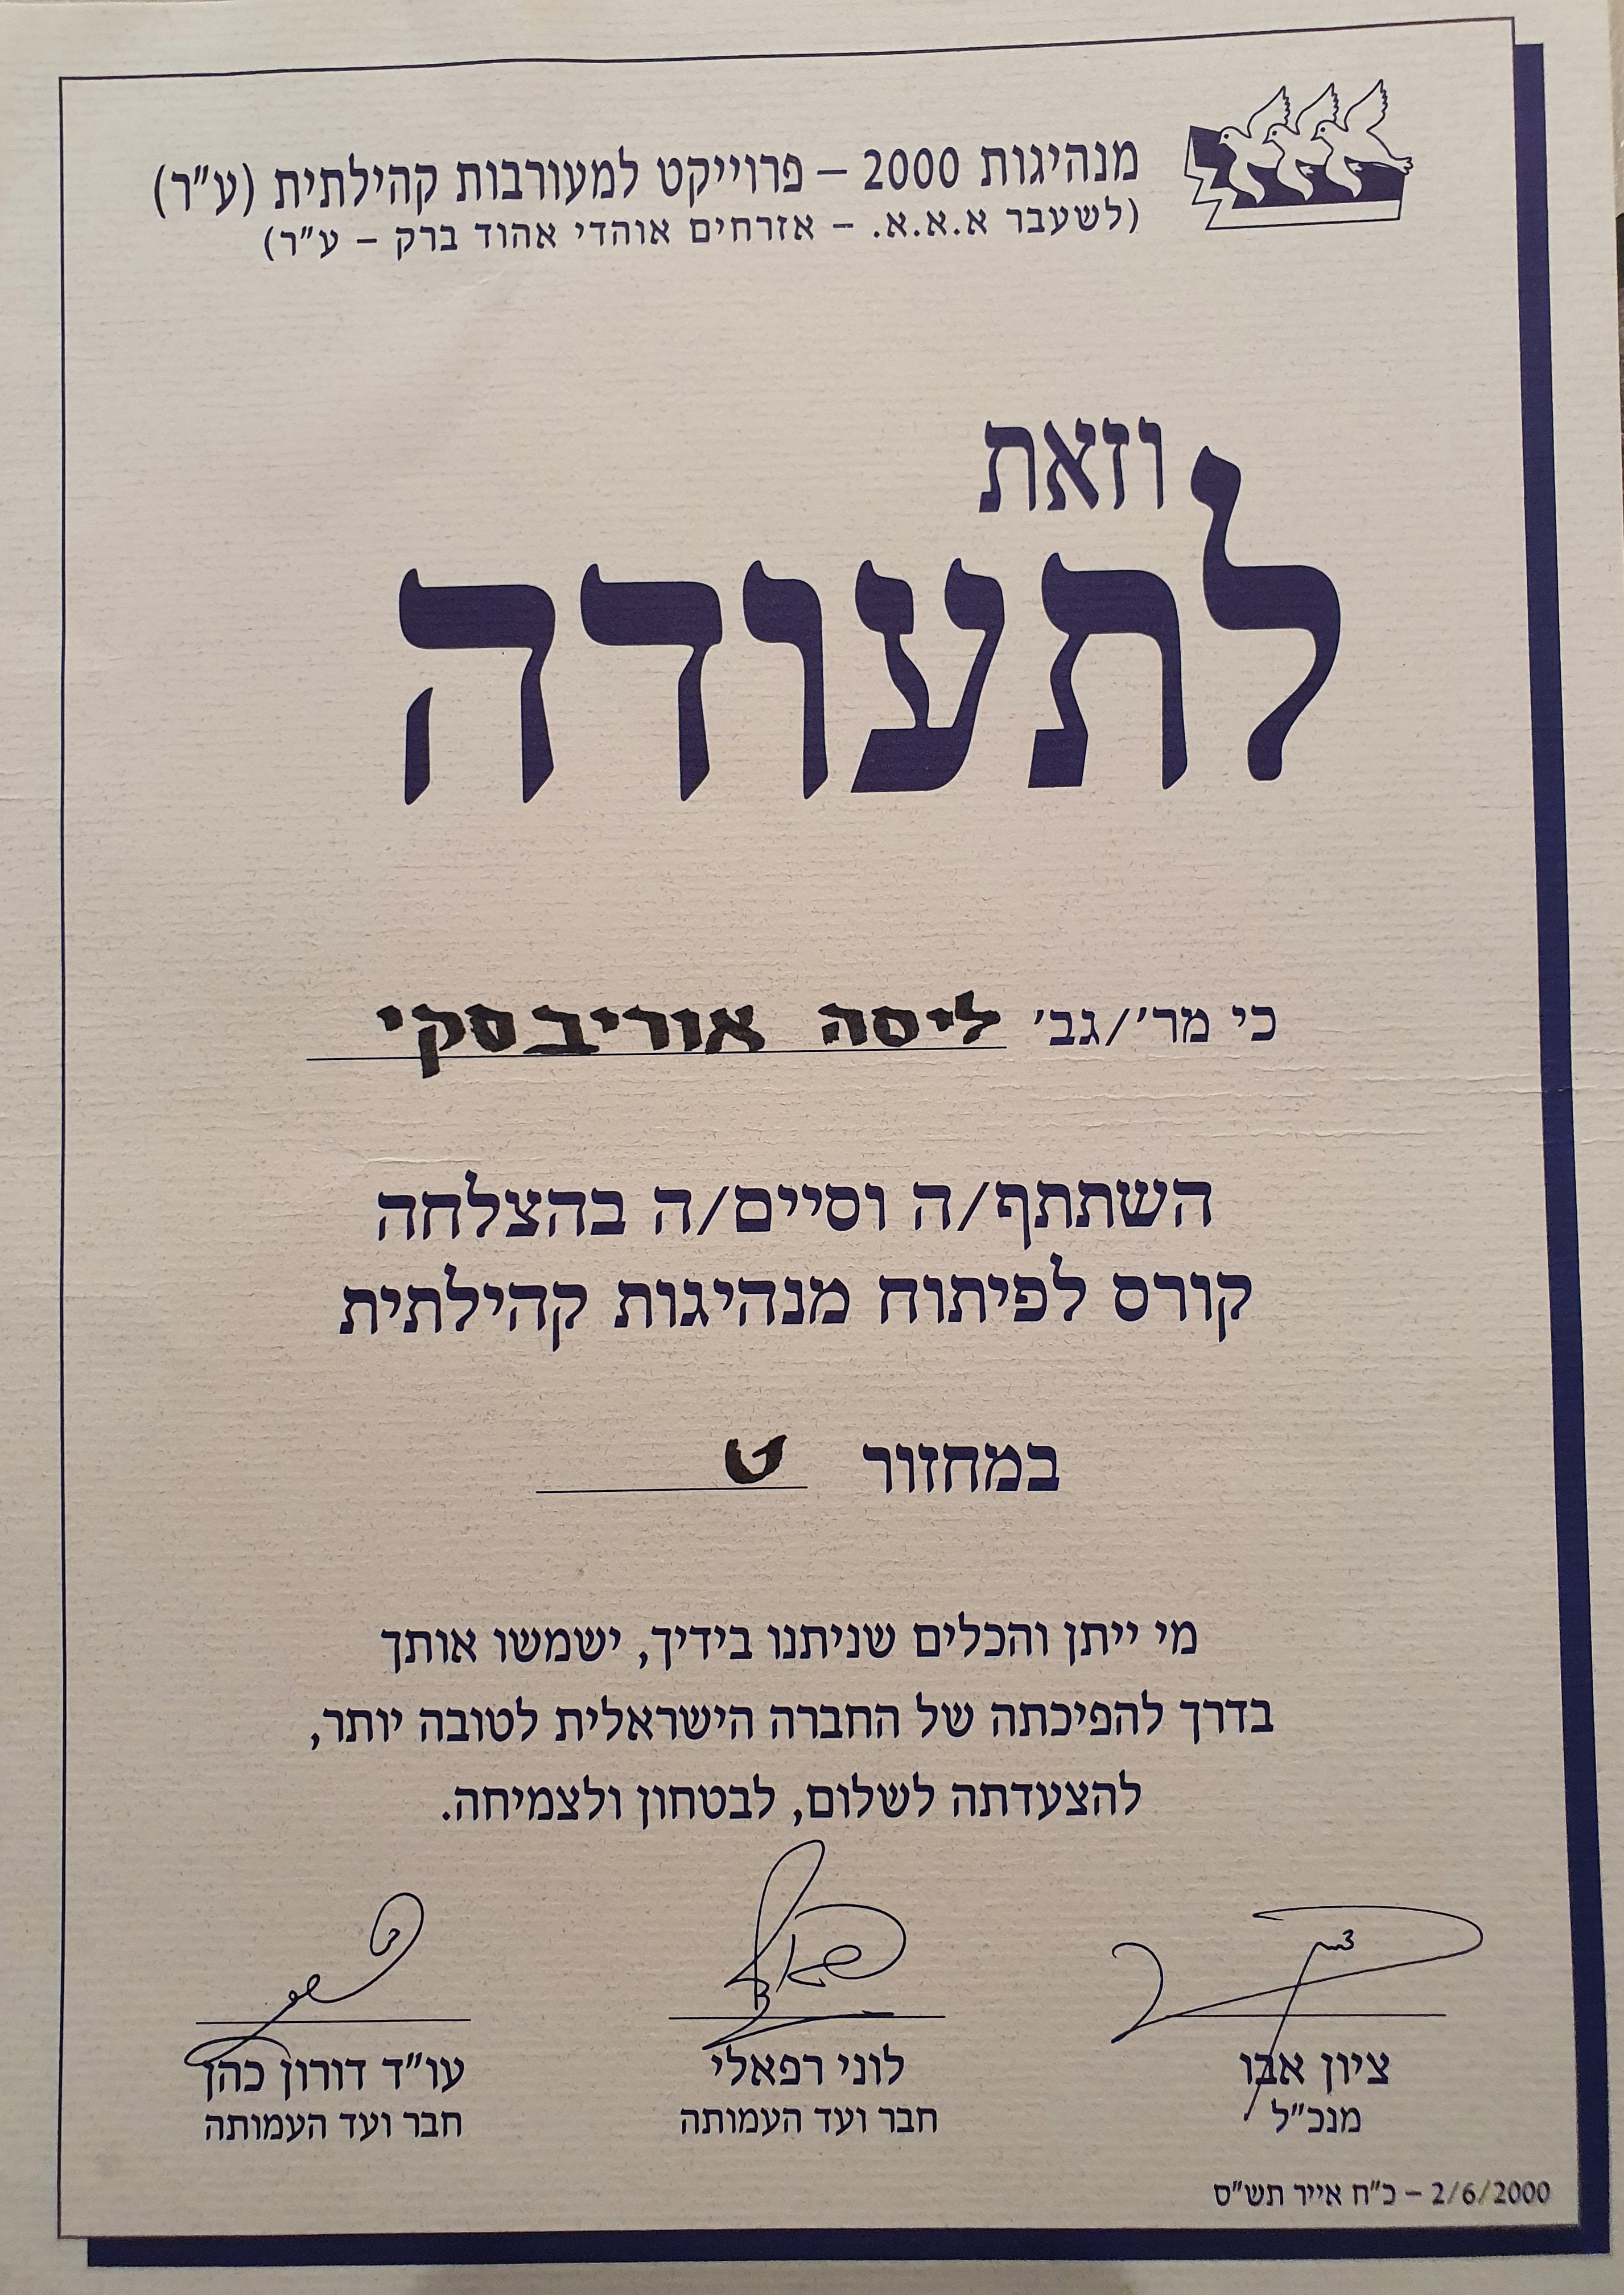 מנהיגות 2000 – פרוייקט למעורבות קהילתית (ע"ר)
(לשעבר א.א.א. – אזרחים אוהדי אהוד ברק – ע"ר)
וזאת
לתעודה
כי מר'/גב' ליסה אוריבסקי
השתתף/ה וסיים/ה בהצלחה
קורס לפיתוח מנהיגות קהילתית
במחזור ט
מי ייתן והכלים שניתנו בידיך, ישמשו אותך
בדרך להפיכתה של החברה הישראלית לטובה יותר,
להצעדתה לשלום, לבטחון ולצמיחה.
ציון אבו
מנכ"ל
לוני רפאלי
חבר ועד העמותה
עו"ד דורון כהן
חבר ועד העמותה
2/6/2000 – כ"ח אייר תש"ס